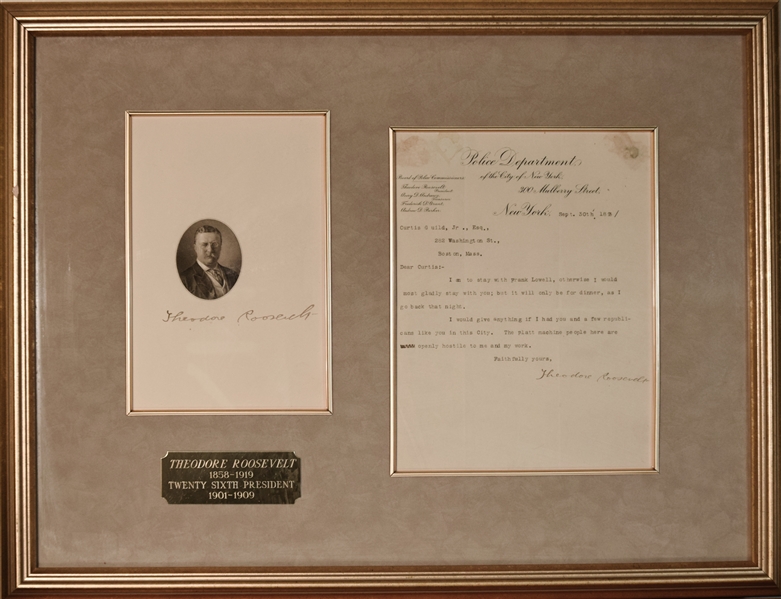 Theodore Roosevelt
THEODORE ROOSEVELT
1858-1919
TWENTY SIXTH PRESIDENT
1901-1909
Police Department
of the City of New York.
300 Mulberry Street,
Board of Police Commissioners
Theodore Roosevelt
President
Avery D. Andrews
Frederick D. Grant
Andrew D. Parker
New York, Sept. 20th, 189
Curtis Guild, Jr., Esq.,
Washington St.,
Boston, Mass.
Dear Curtis:-
I am to stay with Frank Lowell, otherwise I would
most gladly stay with you; but it will only be for dinner, as I
go back that night.
I would give anything if I had you and a few republi-
cans like you in this City. The Platt machine people here are
openly hostile to me and my work.
Faithfully yours,
Theodore Roosevelt